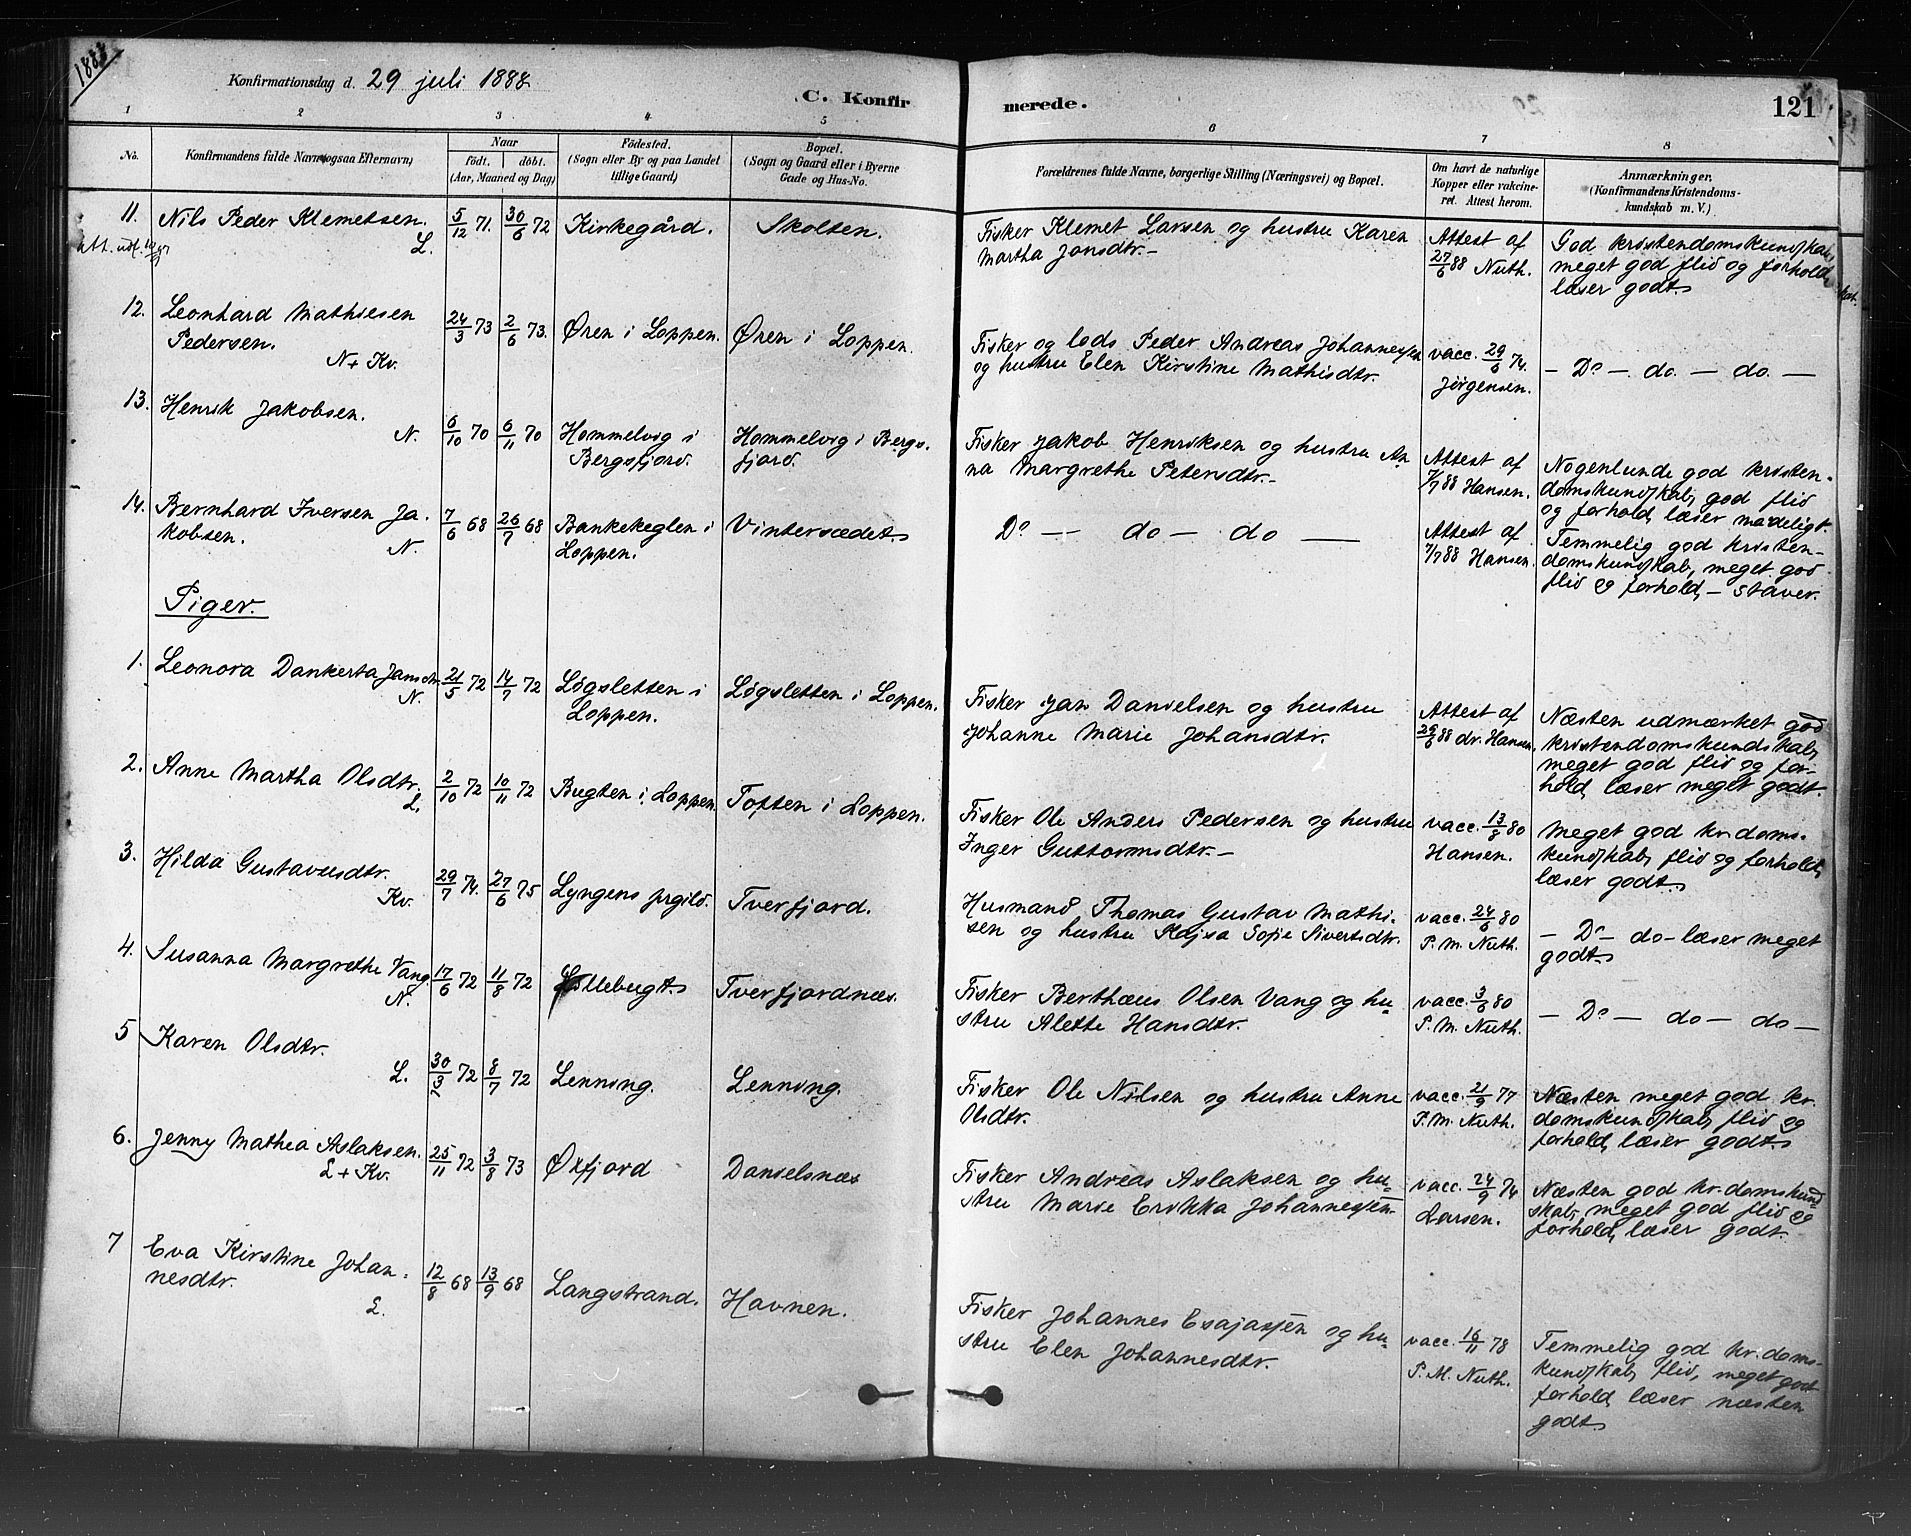 1888
Konfirmationsdag d. 29 juli 1888
C. Konfirmerede.
121
1 2 3 4 5 6 7 8
No.
Konfirmandens fulde Navn (ogsaa Efternavn)
Naar
født. døbt.
(Aar, Maaned og Dag)
Fødested.
(Sogn eller By og paa Landet
tillige Gaard)
Bopæl.
(Sogn og Gaard eller i Byerne
Gade og Hus-No.
Forældrenes fulde Navne, borgerlige Stilling (Næringsvei) og Bopæl.
Om havt de naturlige
Kopper eller vakcine-
ret. Attest herom.
Anmærkninger.
(Konfirmandens Kristendoms-
kundskab m. V.)
11. Nils Peder Klemetsen. L.
Att. udf.
5/12 71. 30/6 72
Kirkegård.
Skolten.
Fisker Klemet Larsen og hustru Karen
Martha Jansdtr.-
Attest af
27/6 88 Nuth.
God kristendomskundskab,
meget god flid og forhold,
læser godt.
12. Leonhard Mathiesen
Pedersen.
N + Kv.
24/3 73 2/6 73.
Øren i Loppen.
Øren i Loppen.
Fisker og lods Peder Andreas Johannessen
og hustru Elen Kirstine Mathisdtr.
vacc. 29/6 74.
Jørgensen.
- Do - do. - do. -
13. Henrik Jakobsen.
N.
6/10 70 6/11 70
Hommelvig i
Bergsfjord.
Hommelvig i Bergs-
fjord.
Fisker Jakob Henriksen og hustru An-
na Margrethe Petersdtr.-
Attest af
7/7 88 Hansen.
Nogenlunde god kristen-
domskundskab, god flid
og forhold, læser mådeligt.
14. Bernhard Iversen Ja-
kobsen. N.
7/6 68 26/7 68
Bankekeglen i
Loppen.
Vintersædet.
Do - do - do -
Attest af
7/7 88 Hansen.
Temmelig god kristen-
domskundskab, meget god
flid og forhold, - staver.
Piger.
1. Leonora Dankerta Jansdtr.
N.
21/5 72 14/7 72
Løgsletten i
Loppen.
Løgsletten i Loppen.
Fisker Jan Danielsen og hustru
Johanne Marie Johansdtr.
Attest af
29/6 88 dr. Hansen.
Næsten udmærket god
kristendomskundskab,
meget god flid og for-
hold, læser meget godt.
2. Anne Martha Olsdtr.
L.
2/10 72 10/11 72
Bugten i Loppen
Toften i Loppen.
Fisker Ole Anders Pedersen og hustru
Inger Guttormsdtr.-
vacc. 13/8 80
Hansen.
Meget god kr.doms-
kundskab, flid og forhold,
læser godt.
3. Hilda Gustavusdtr.
Kv.
29/7 74. 27/6 75
Lyngens prgild.
Tverfjord.
Husmand Thomas Gustav Mathi-
sen og hustru Kajsa Sofie Sivertsdtr.
vacc. 24/6 80
P. M. Nuth.
- Do - do - læser meget
godt.
4. Susanna Margrethe Vang
N.
17/6 72 11/8 72
Lillebugt.
Tverfjordnæs.
Fisker Berthæus Olsen Vang og hu-
stru Alette Hansdtr.
vacc. 3/6 80
P. M. Nuth.
- Do - do - do -
5 Karen Olsdtr.
L.
30/3 72 8/7 72
Lenning.
Lenning.
Fisker Ole Nilsen og hustru Anne
Olsdtr.
vacc. 21/9 77
P. M. Nuth.
Næsten meget god kr.
domskundskab, flid og
forhold, læser godt.
6. Jenny Mathea Aslaksen.
L + Kv.
25/11 72 3/8 73
Øxfjord
Danielsnæs
Fisker Andreas Aslaksen og hu-
stru Marie Erikka Johannessen.
vacc. 24/9 74
Larsen.
Næsten god kr.domskund-
skab, meget god flid og
forhold, læser godt.
7 Eva Kirstine Johan-
nesdtr.
L.
12/8 68 13/9 68
Langstrand.
Havnen.
Fisker Johannes Esajassen og hu-
stru Elen Johannesdtr.
vacc. 16/11 78
P. M. Nuth.
Temmelig god kr.doms-
kundskab, flid, meget godt
forhold, læser næsten
godt.